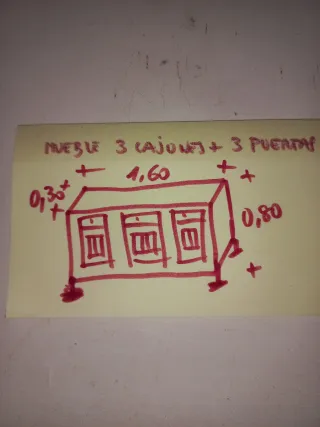 MUEBLE 3 CAJONES + 3 PUERTAS
1,60
0,30
0,80